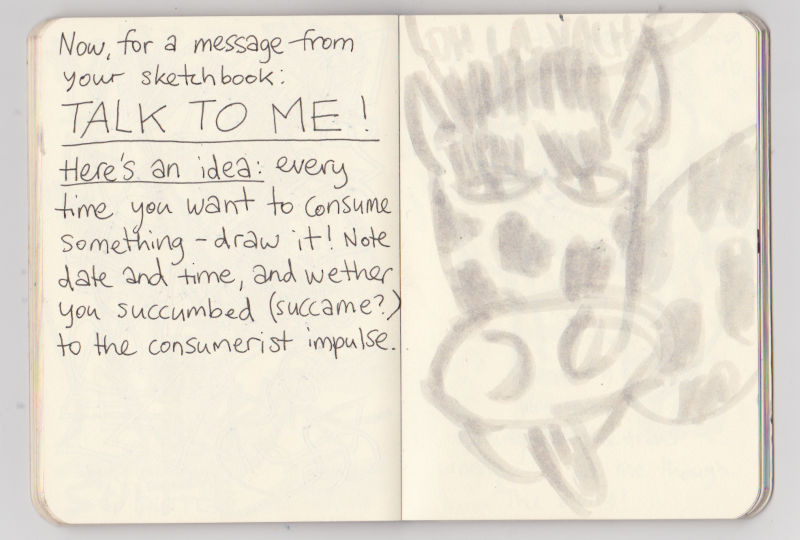 Now, for a message from
your sketchbook:
TALK TO ME!
Here's an idea: every
time you want to consume
something - draw it! Note
date and time, and wether
you succumbed (succame?)
to the consumerist impulse.